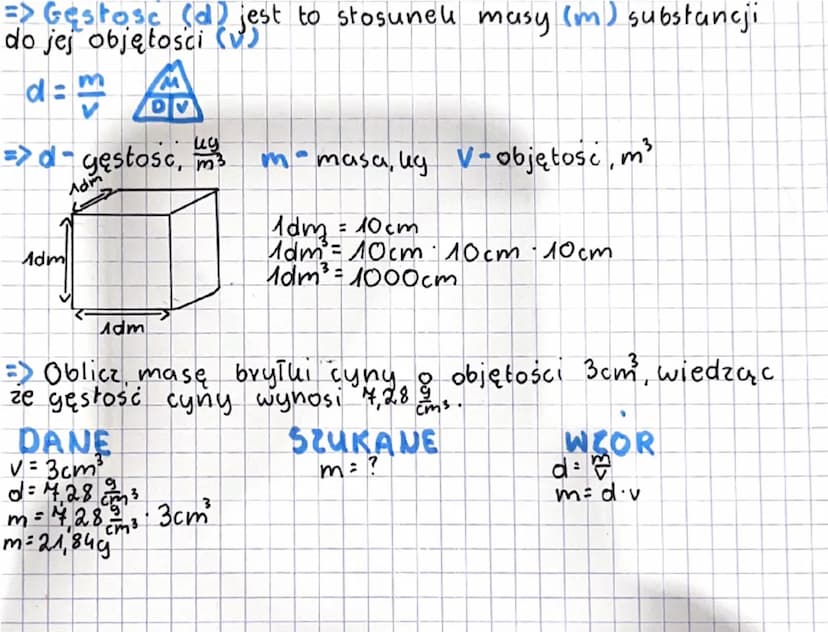 => Gęstość (d) jest to stosunek masy (m) substancji
do jej objętości (v)
d = m/v
M
D V
=> d - gęstość, kg/m³ m - masa, kg V - objętość, m³
1dm
1dm
1dm
1dm = 10cm
1dm³ = 10cm · 10cm · 10cm
1dm³ = 1000cm
=> Oblicz masę bryłki cyny o objętości 3cm³, wiedząc
że gęstość cyny wynosi 7,28 g/cm³.
DANE SZUKANE WZÓR
v = 3cm³ m = ? d = m/v
d = 7,28 g/cm³ m = d·v
m = 7,28 g/cm³ · 3cm³
m = 21,84g